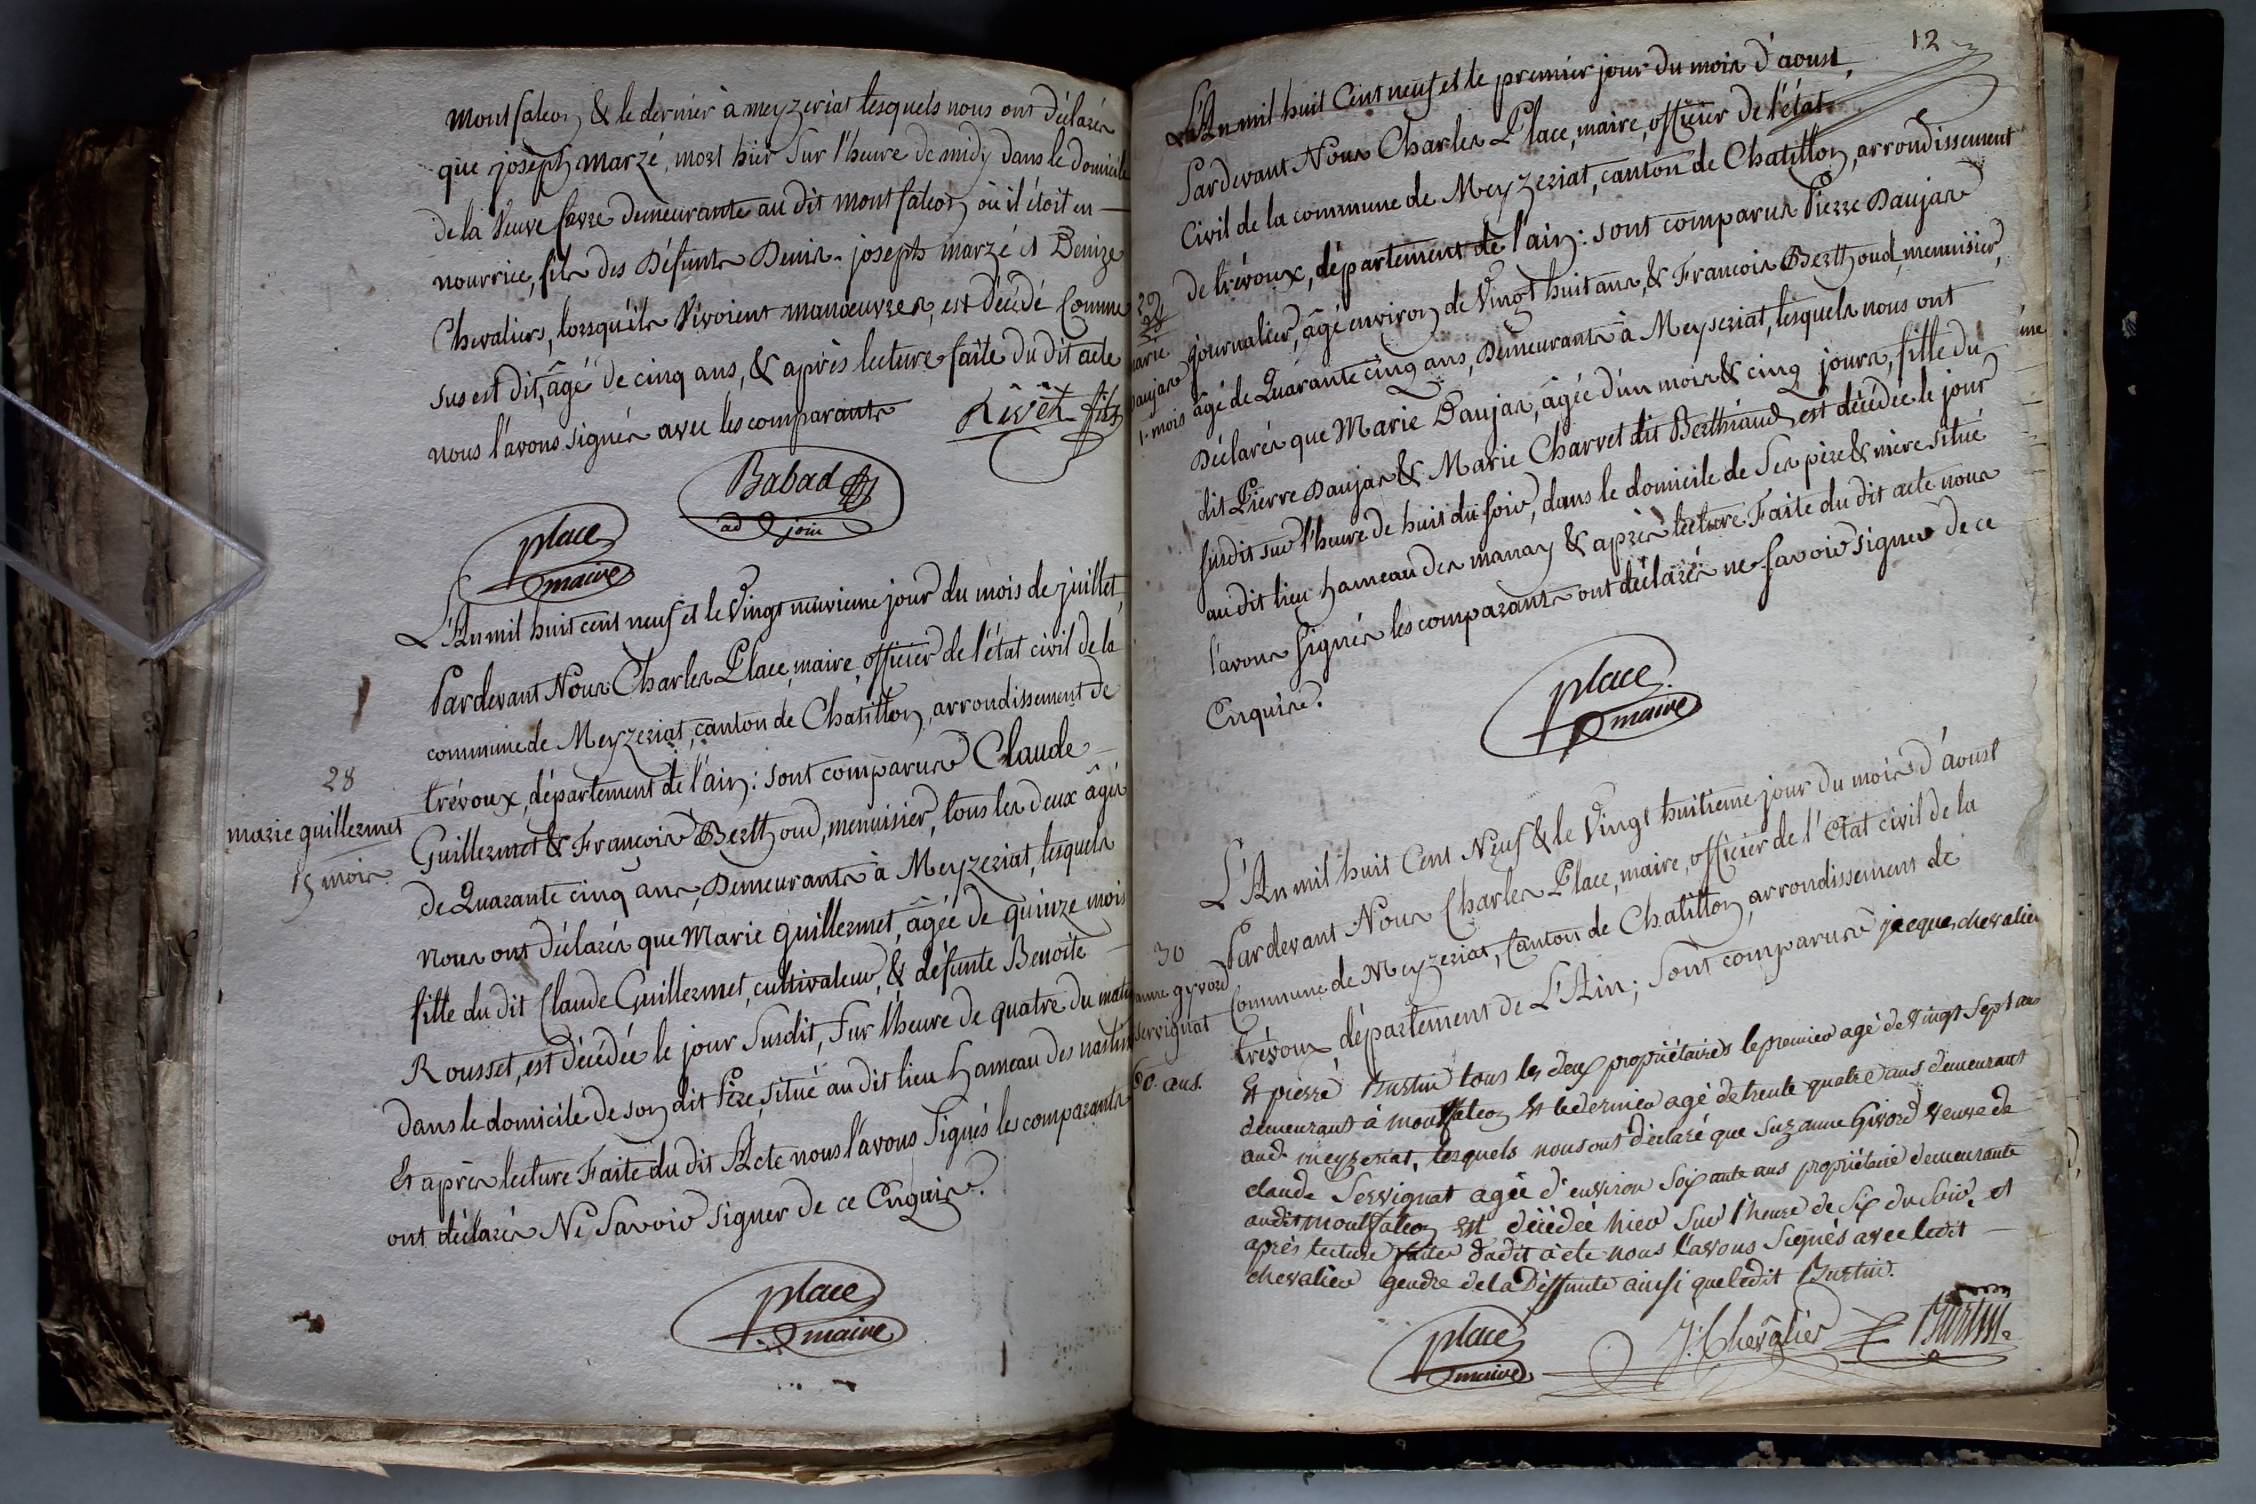 montfalcon & le dernier à meyzeriat lesquels nous ont déclarés
que joseph marzé, mort hier sur l'heure de midy dans le domicile
de la veuve favre demeurante au dit montfalcon où il étoit en
nourrice, fils des défunts Denis-joseph marzé et Denize
Chevaliers, lorsqu'ils vivoient manœuvres, est décédé comme
sus est dit, âgé de cinq ans, & après lecture faite du dit acte
nous l'avons signés avec les comparants
Rivêt fils
Babad
adjoin
place
maire
L'An mil huit cent neuf et le vingt neuvieme jour du mois de juillet,
Pardevant Nous Charles Place, maire, officier de l'état civil de la
commune de Meyzeriat, canton de Chatillon, arrondissement de
28
trévoux, département de l'ain : sont comparus Claude
marie guillermet
Guillermet & François Berthoud, menuisier, tous les deux âgés
15 mois.
de Quarante cinq ans, Demeurants à Meyzeriat, lesquels
nous ont déclarés que Marie guillermet, âgée de quinze mois
fille du dit Claude Guillermet, cultivateur, & défunte Benoite
Rousset, est décédée le jour susdit, sur l'heure de quatre du matin
dans le domicile de son dit Père, situé au dit lieu hameau des
Et après lecture Faite du dit Acte nous l'avons signés les comparants
ont déclarés Ne savoir signer de ce Enquis.
place
maire
12
L'An mil huit Cent neuf et le premier jour du mois d'aoust,
Pardevant Nous Charles Place, maire, officier de l'état
Civil de la commune de Meyzeriat, canton de Chatillon, arrondissement
de trévoux, département de l'ain : sont comparus Pierre Daujas
29
journalier, âgé environ de vingt huit ans, & François Berthoud, menuisier,
marie
daujas
âgé de Quarante cinq ans, Demeurants à Meyseriat, lesquels nous ont
1. mois
Déclarés que Marie Daujas, âgée d'un mois & cinq jours, fille du
dit Pierre Daujas & Marie Charvet dit Berthiaud, est décédée le jour
susdit sur l'heure de huit du soir, dans le domicile de ses père & mère situé
au dit lieu hameau des manay & après lecture Faite du dit acte nous
l'avons signés les comparants ont déclarés ne savoir signer de ce
Enquis.
place
maire
L'An mil huit Cent Neuf & le vingt huitieme jour du mois d'aoust
Pardevant Nous Charles Place, maire, officier de l'Etat civil de la
30
Commune de Meyzeriat, Canton de Chatillon, arrondissement de
trévoux, département de L'Ain; sont comparus jacque chevalier
servignat
60. ans.
Et pierre Burtin tous les deux propriétaires le premier agé de vingt sept ans
demeurant à montfalcon et le dernier agé de trente quatre ans demeurant
aud. meyzeriat, lesquels nous ont déclaré que Suzanne Givord veuve de
claude Servignat agée d'environ soixante ans propriétaire demeurante
audit montfalcon est décédée hier sur l'heure de six du soir. et
après lecture faite dudit acte nous l'avons signés avec ledit
chevalier gendre de la Deffunte ainsi que ledit Burtin.
place
maire
J. Chevâlier
Burtin